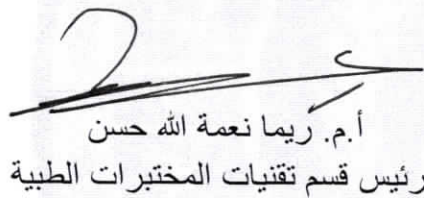 أ.م. ريما نعمة الله حسن
رئيس قسم تقنيات المختبرات الطبية